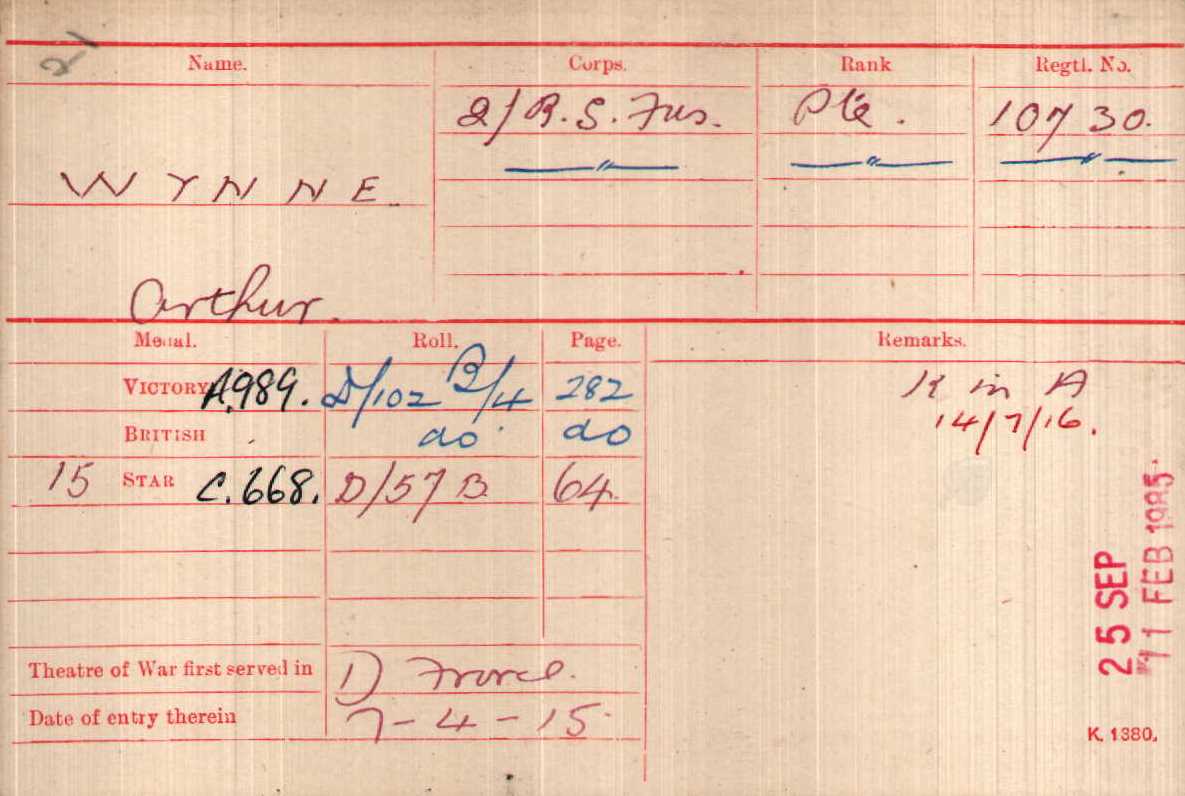 21
Name. Corps. Rank Regtl. No.
2/R.S. Fus. Pte. 10730.
" " "
WYNNE.
Arthur.
Medal. Roll. Page. Remarks.
VICTORY A.989. D/102 B/4 282 K in A
BRITISH do do 14/7/16.
15 STAR C.668. D/57 B 64.
Theatre of War first served in 1) France.
Date of entry therein 7-4-15.
25 SEP
11 FEB 1985
K. 1380.